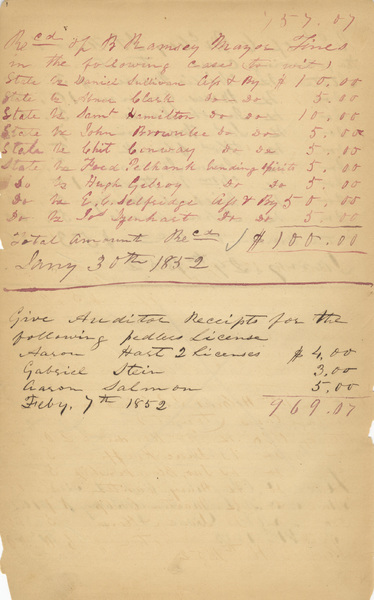 757.07
Recd of B Ramsey Mayor Fines
in the following case (to wit)
State Vs Daniel Sullivan Aff & By $ 10.00
State Vs Clark Do Do 5.00
State Vs Saml Hemilton Do Do 10.00
State Vs John Brownlee Do Do 5.00
State Vs Chit Conway Do Do 5.00
State Vs Fred Vending Spirits 5.00
Do Vs Hugh Gilroy Do Do 5.00
Do Vs E. C. Selfridge Aff & By 50.00
Do Vs Jos Do Do 5.00
Total Amount Recd $100.00
Jany 30th 1852
Give Auditor Receipts for the
following pedlers License
Aaron Hart 2 Licenses $ 4.00
Gabriel Stein 3.00
Aaron Salmon 5.00
Feby. 7th 1852 969.07